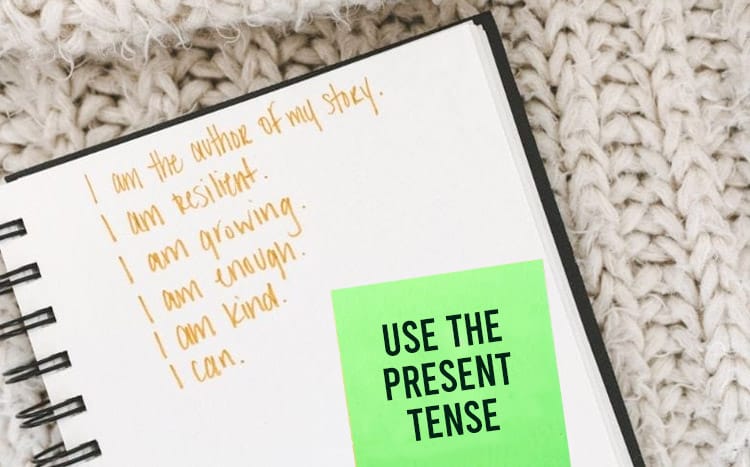 I am the author of my story.
I am resilient.
I am growing.
I am enough.
I am kind.
I can.
USE THE
PRESENT
TENSE